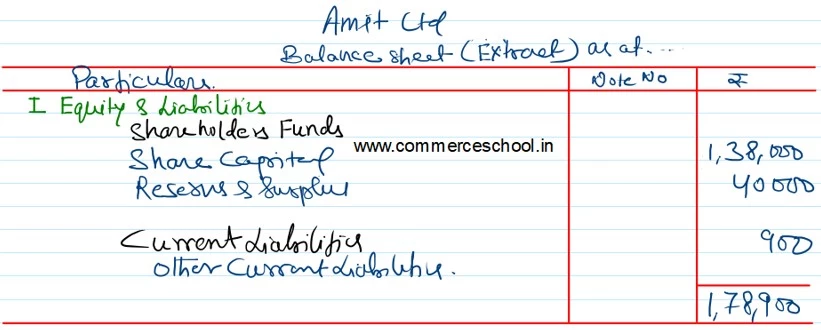 Amit Ltd
Balance sheet (Extract) as at....
Particulars. Note No ₹
I Equity & Liabilities
Shareholders Funds
www.commerceschool.in
Share Capital 1,38,000
Reserves & Surplus 40000
Current Liabilities 900
Other Current Liabilities.
1,78,900